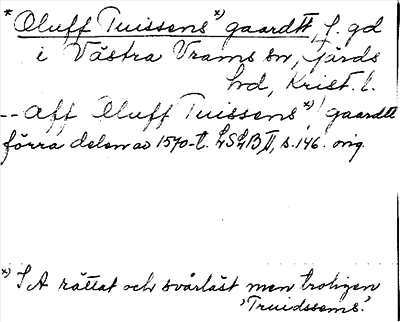 * Oluff Tuissens *) gaardtt, f. gd
i Västra Vrams sn, Gärds
hrd, Krist. l.
-- Aff Oluff Tuissens *) gaardtt
förra delen av 1570-t. LSLB II, s. 146. orig.
*) I A rättat och svårläst men troligen
'Truidssems'.